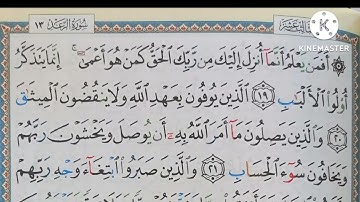 سُورَةُ الرَّعْدِ ١٣
KINEMASTER
۞ أَفَمَن يَعْلَمُ أَنَّمَآ أُنزِلَ إِلَيْكَ مِن رَّبِّكَ ٱلْحَقُّ كَمَنْ هُوَ أَعْمَىٰٓ ۚ إِنَّمَا يَتَذَكَّرُ
أُو۟لُوا۟ ٱلْأَلْبَـٰبِ ١٩ ٱلَّذِينَ يُوفُونَ بِعَهْدِ ٱللَّهِ وَلَا يَنقُضُونَ ٱلْمِيثَـٰقَ
٢٠ وَٱلَّذِينَ يَصِلُونَ مَآ أَمَرَ ٱللَّهُ بِهِۦٓ أَن يُوصَلَ وَيَخْشَوْنَ رَبَّهُمْ
وَيَخَافُونَ سُوٓءَ ٱلْحِسَابِ ٢١ وَٱلَّذِينَ صَبَرُوا۟ ٱبْتِغَآءَ وَجْهِ رَبِّهِمْ